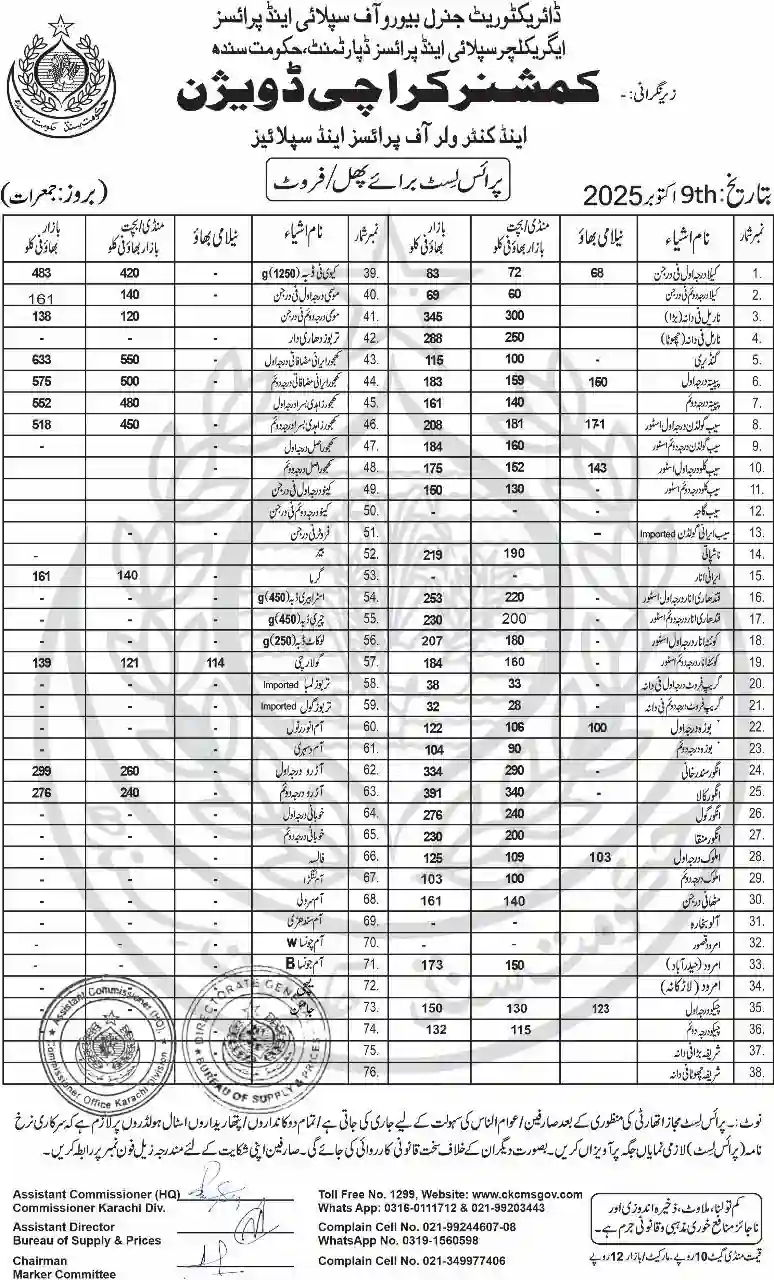 ڈائریکٹوریٹ جنرل بیورو آف سپلائی اینڈ پرائسز
ایگریکلچر سپلائی اینڈ پرائسز ڈپارٹمنٹ، حکومت سندھ
زیر نگرانی: - کمشنر کراچی ڈویژن
اینڈ کنٹرولر آف پرائسز اینڈ سپلائیز
پرائس لسٹ برائے پھل/فروٹ
بتاریخ: 9th اکتوبر 2025
(بروز: جمعرات)
نمبر شمار نام اشیاء نیلامی بھاؤ منڈی/بچت بازار بھاؤ فی کلو بازار بھاؤ فی کلو
1. کیلا درجہ اول فی درجن 68 72 83
2. کیلا درجہ دوئم فی درجن 60 69
3. ناریل فی دانہ (بڑا) 300 345
4. ناریل فی دانہ (چھوٹا) 250 288
5. گنڈیری - 100 115
6. پپیتہ درجہ اول 150 159 183
7. پپیتہ درجہ دوئم 140 161
8. سیب گولڈن درجہ اول اسٹور 171 181 208
9. سیب گولڈن درجہ دوئم اسٹور - 160 184
10. سیب کلو درجہ اول اسٹور 143 152 175
11. سیب کلو درجہ دوئم اسٹور - 130 150
12. سیب گاجہ - - -
13. سیب ایرانی گولڈن Imported -
14. ناشپاتی 190 219
15. ایرانی انار - -
16. قندھاری انار درجہ اول اسٹور - 220 253
17. قندھاری انار درجہ دوئم اسٹور - 200 230
18. کوئٹا انار درجہ اول اسٹور - 180 207
19. کوئٹا انار درجہ دوئم اسٹور - 160 184
20. گریپ فروٹ درجہ اول فی دانہ - 33 38
21. گریپ فروٹ درجہ دوئم فی دانہ - 28 32
22. بوزہ درجہ اول 100 106 122
23. بوزہ درجہ دوئم 90 104
24. انگور سندرخانی - 290 334
25. انگور کالا - 340 391
26. انگور گول 240 276
27. انگور منقا 200 230
28. املوک درجہ اول 103 109 125
29. املوک درجہ دوئم 100 103
30. مٹھا فی درجن 140 161
31. آلو بخارہ - -
32. امرود قصور -
33. امرود (حیدرآباد) 150 173
34. امرود (لاڑکانہ)
35. چیکو درجہ اول 123 130 150
36. چیکو درجہ دوئم 115 132
37. شریفہ بڑا فی دانہ
38. شریفہ چھوٹا فی دانہ
نمبر شمار نام اشیاء نیلامی بھاؤ منڈی/بچت بازار بھاؤ فی کلو بازار بھاؤ فی کلو
39. کیوی فی ڈبہ (1250)g - 420 483
40. موسمی درجہ اول فی درجن - 140 161
41. موسمی درجہ دوئم فی درجن - 120 138
42. تربوز دھاری دار - - -
43. کھجور ایرانی مضافاتی درجہ اول - 550 633
44. کھجور ایرانی مضافاتی درجہ دوئم - 500 575
45. کھجور زاہدی بسرا درجہ اول - 480 552
46. کھجور زاہدی بسرا درجہ دوئم - 450 518
47. کھجور اصل درجہ اول -
48. کھجور اصل درجہ دوئم -
49. کینو درجہ اول فی درجن
50. کینو درجہ دوئم فی درجن
51. فروٹر فی درجن - -
52. بیر - -
53. گرما - 140 161
54. اسٹرابیری ڈبہ (450)g - - -
55. چیری ڈبہ (450)g - - -
56. لوکاٹ ڈبہ (250)g - - -
57. گولارچی 114 121 139
58. تربوز لمبا Imported - - -
59. تربوز گول Imported - - -
60. آم انور رٹول - - -
61. آم دسہری - -
62. آڑو درجہ اول - 260 299
63. آڑو درجہ دوئم - 240 276
64. خوبانی درجہ اول - - -
65. خوبانی درجہ دوئم - - -
66. فالسہ - - -
67. آم لنگڑا - - -
68. آم سرولی - - -
69. آم سندھڑی - - -
70. آم چونسا W - - -
71. آم چونسا B - - -
72.
73.
74.
75.
76.
Assistant Commissioner (HQ)
Commissioner Office Karachi Division
DIRECTORATE GENERAL
BUREAU OF SUPPLY & PRICES
نوٹ: - پرائس لسٹ مجاز اتھارٹی کی منظوری کے بعد صارفین/عوام الناس کی سہولت کے لیے جاری کی جاتی ہے/تمام دوکانداروں/پتھاریداروں اسٹال ہولڈروں پر لازم ہے کہ سرکاری نرخ
نامہ (پرائس لسٹ) لازمی نمایاں جگہ پر آویزاں کریں۔ بصورت دیگر ان کے خلاف سخت قانونی کارروائی کی جائے گی۔ صارفین اپنی شکایت کے لئے مندرجہ زیل فون نمبر پر رابطہ کریں۔
Assistant Commissioner (HQ)
Commissioner Karachi Div.
Assistant Director
Bureau of Supply & Prices
Chairman
Marker Committee
Toll Free No. 1299, Website: www.ckcmsgov.com
Whats App: 0316-0111712 & 021-99203443
Complain Cell No. 021-99244607-08
WhatsApp No. 0319-1560598
Complain Cell No. 021-349977406
کم تولنا، ملاوٹ، ذخیرہ اندوزی اور
ناجائز منافع خوری مذہبی و قانونی جرم ہے۔
قیمت منڈی گیٹ 10 روپے، مارکیٹ/بازار 12 روپے